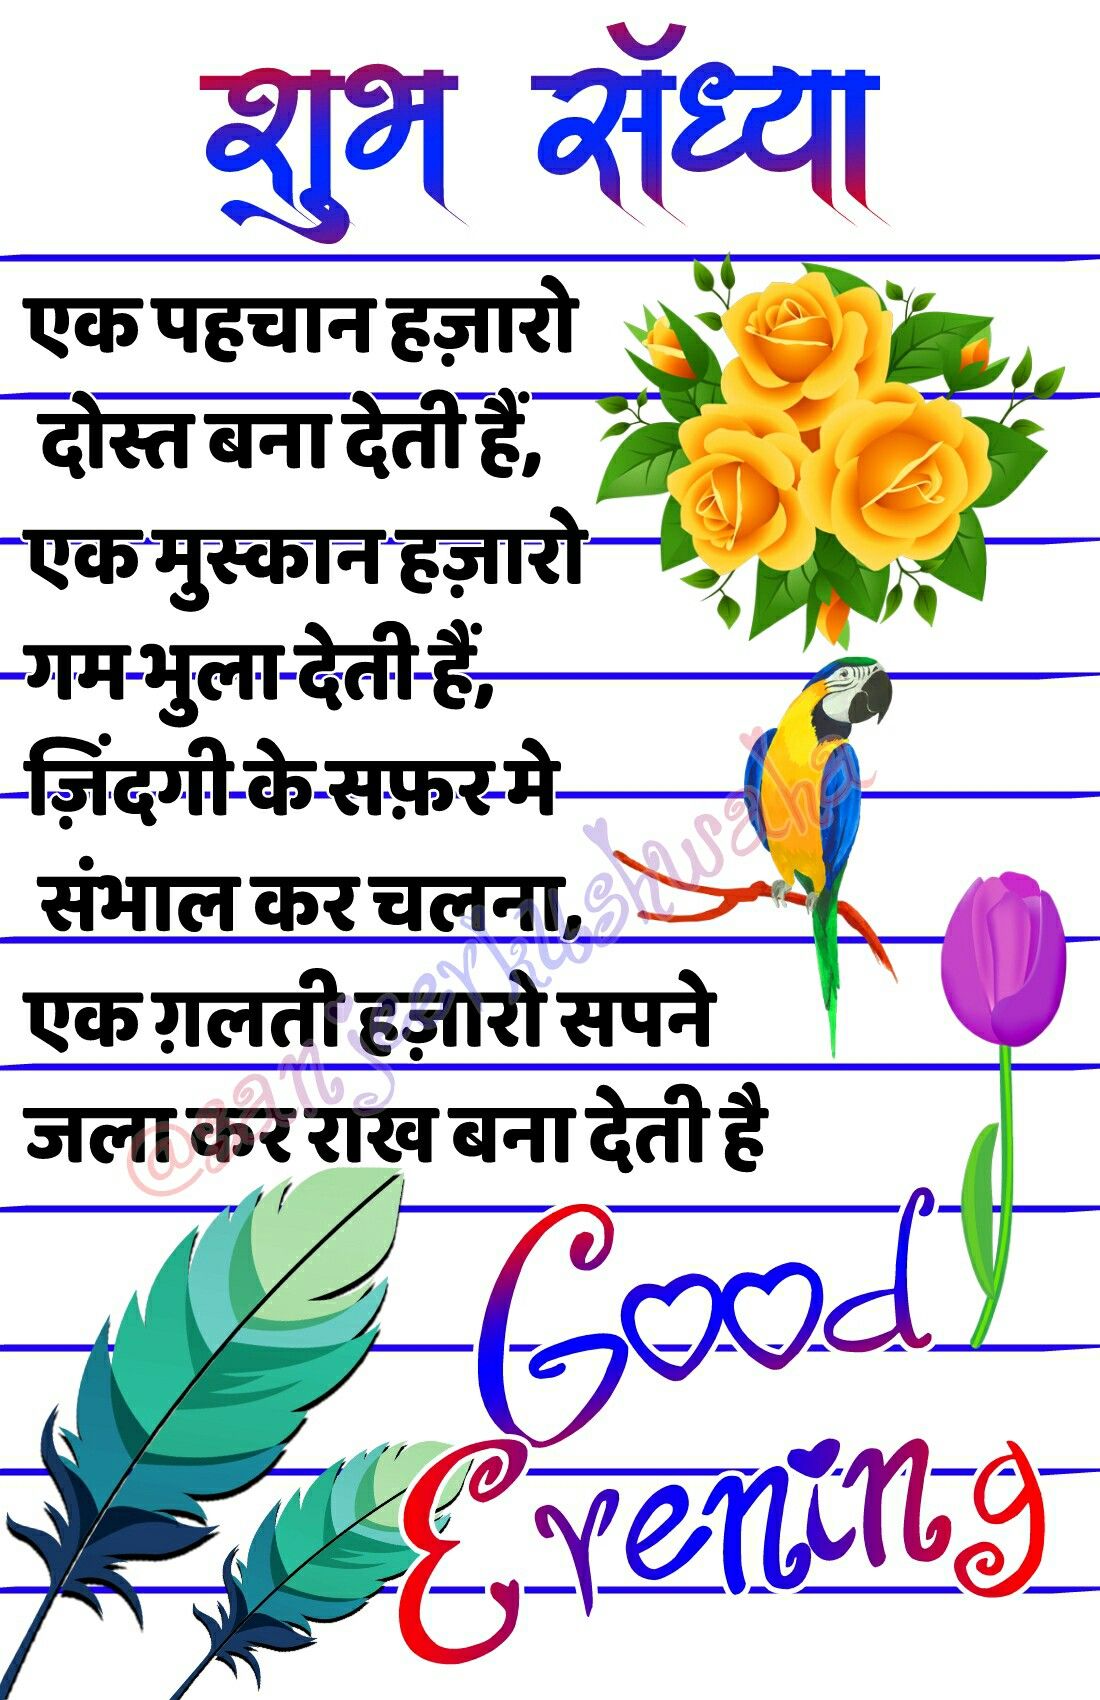 शुभ सॅध्या
एक पहचान हज़ारो
दोस्त बना देती हैं,
एक मुस्कान हज़ारो
गम भुला देती हैं,
ज़िंदगी के सफ़र मे
संभाल कर चलना,
एक ग़लती हज़ारो सपने
जला कर राख बना देती है
@sanjeerkushwaha
Good
Evening